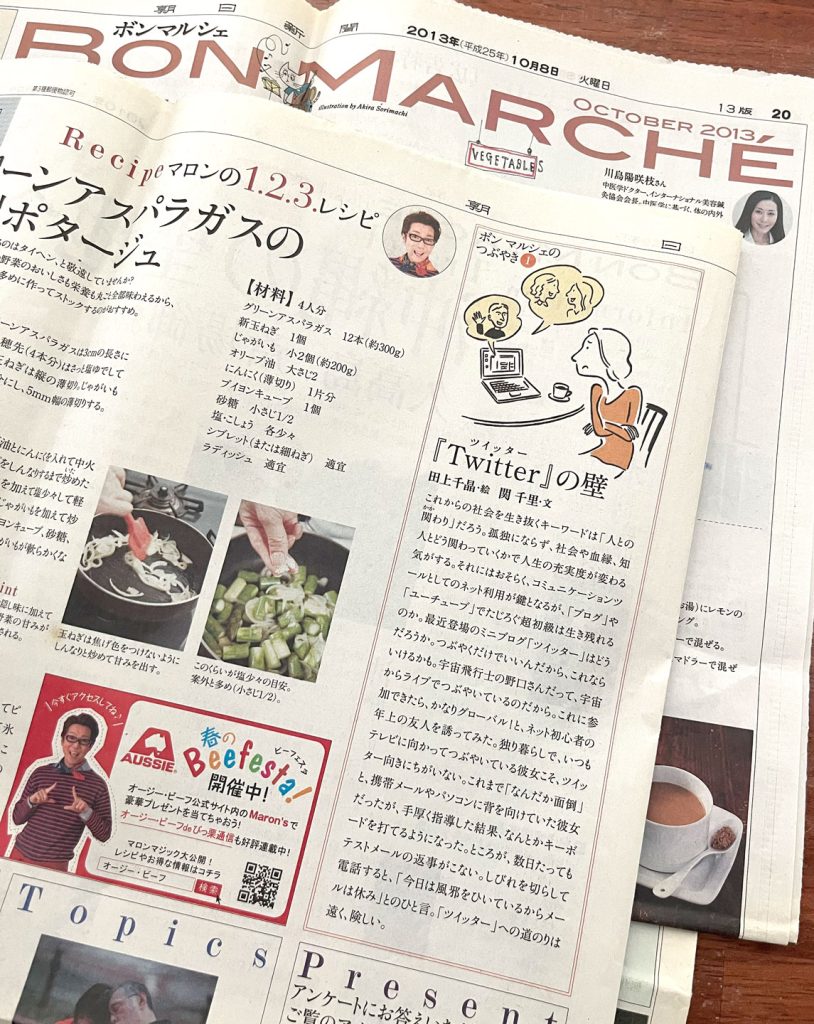 朝 日 新 聞
ボンマルシェ
2013年(平成25年)10月8日 火曜日
13版 20
BON MARCHÉ
OCTOBER 2013
illustration by Akira Sorimachi
VEGETABLES
川島陽咲枝さん
中医学ドクター、インターナショナル美容鍼
灸協会会長。中医学に基づく、体の内外
第3種郵便物認可
朝 日
Recipe マロンの1.2.3.レシピ
ーンアスパラガスの
ポタージュ
のはタイヘン、と敬遠していませんか?
野菜のおいしさも栄養も丸ごと全部味わえるから、
多めに作ってストックするのがおすすめ。
【材料】4人分
グリーンアスパラガス 12本(約300g)
新玉ねぎ 1個
じゃがいも 小2個(約200g)
オリーブ油 大さじ2
にんにく(薄切り) 1片分
ブイヨンキューブ 1個
砂糖 小さじ1/2
塩・こしょう 各少々
シブレット(または細ねぎ) 適宜
ラディッシュ 適宜
ーンアスパラガスは3cmの長さに
穂先(4本分)はさっと塩ゆでして
玉ねぎは縦の薄切り。じゃがいも
にし、5mm幅の薄切りする。
油とにんにくを入れて中火
をしんなりするまで炒めた
を加えて塩少々して軽
じゃがいもを加えて炒
ヨンキューブ、砂糖、
がいもが軟らかくな
int
認し味に加えて
野菜の甘みが
される。
玉ねぎは焦げ色をつけないように
しんなりと炒めて甘みを出す。
このくらいが塩少々の目安。
案外と多め(小さじ1/2)。
ボン マルシェの
つぶやき 1
ツイッター
『Twitter』の壁
田上千晶・絵 関 千里・文
これからの社会を生き抜くキーワードは「人との
かか
関わり」だろう。孤独にならず、社会や血縁、知
人とどう関わっていくかで人生の充実度が変わる
気がする。それにはおそらく、コミュニケーションツ
ールとしてのネット利用が鍵となるが、「ブログ」や
「ユーチューブ」でたじろぐ超初級は生き残れる
のか。最近登場のミニブログ「ツイッター」はどう
だろうか。つぶやくだけでいいんだから、これなら
いけるかも。宇宙飛行士の野口さんだって、宇宙
からライブでつぶやいているのだから。これに参
加できたら、かなりグローバル!と、ネット初心者の
年上の友人を誘ってみた。独り暮らしで、いつも
テレビに向かってつぶやいている彼女こそ、ツイッ
ター向きにちがいない。これまで「なんだか面倒」
と、携帯メールやパソコンに背を向けていた彼女
だったが、手厚く指導した結果、なんとかキーボ
ードを打てるようになった。ところが、数日たっても
テストメールの返事がこない。しびれを切らして
電話すると、「今日は風邪をひいているからメー
ルは休み」とのひと言。「ツイッター」への道のりは
遠く、険しい。
お湯)にレモンの
ング。
ーで混ぜる。
マドラーで混ぜ
今すぐアクセスしてね♪
AUSSIE.
春の
ビーフェスタ
Beefesta!
開催中!
オージー・ビーフ公式サイト内のMaron'sで
豪華プレゼントを当てちゃおう!
オージー・ビーフdeびっ栗通信も好評連載中!
マロンマジック大公開!
レシピやお得な情報はコチラ
オージー・ビーフ 検索
Topics
Present
アンケートにお答えい